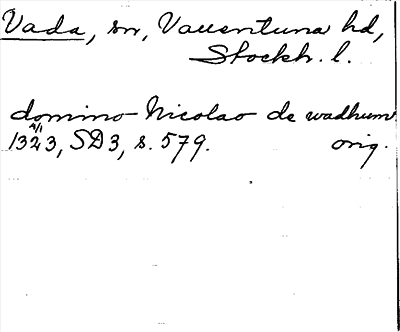 Vada, sn, Vallentuna hd,
Stockh. l.
domino Nicolao de wadhum
1323, SD 3, s. 579. orig.